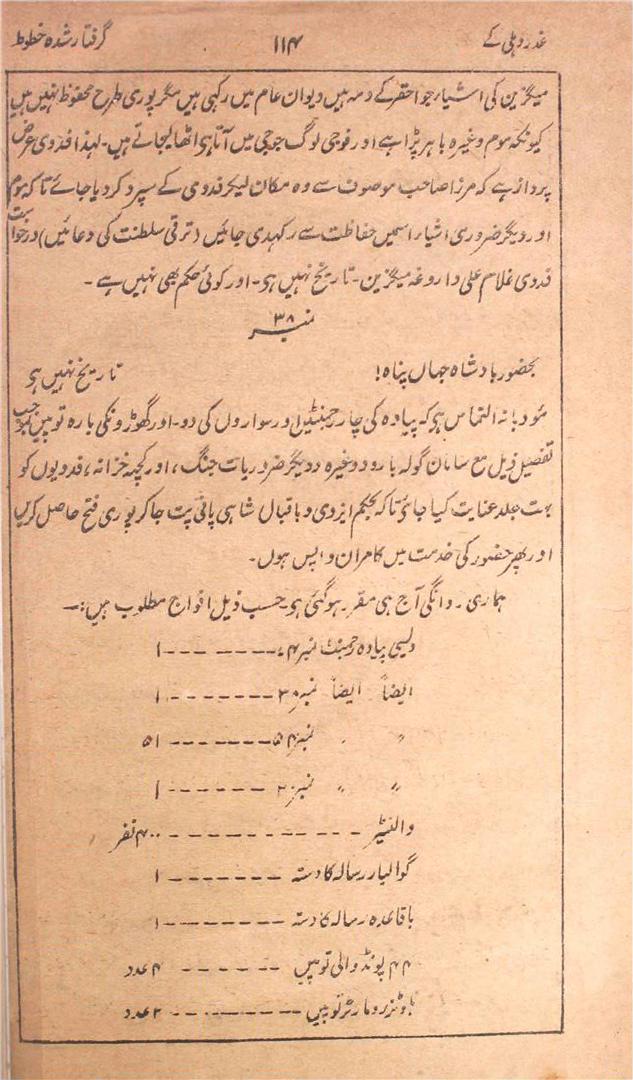 غدر دہلی کے ۱۱۴ گرفتار شدہ خطوط
میگزین کی اشیار جو احقر کے ذمہ ہیں دیوان عام میں رکہی ہیں مگر پوری طرح محفوظ نہیں ہیں
کیونکہ موم وغیرہ باہر پڑا ہے اور فوجی لوگ جو جی میں آتا ہی اٹھا لیجاتے ہیں۔ لہذا فدوی عرض
پرداز ہے کہ مرزا صاحب موصوف سے وہ مکان لیکر فدوی کے سپرد کر دیا جائے تاکہ موم
اور دیگر ضروری اشیار اسمیں حفاظت سے رکہدی جائیں (ترقی سلطنت کی دعائیں) درخواست
فدوی غلام علی داروغہ میگزین۔ تاریخ نہیں ہی۔ اور کوئی حکم بھی نہیں ہے۔
نمبر ۳۸
بحضور بادشاہ جہاں پناہ! تاریخ نہیں ہی
مؤدبانہ التماس ہی کہ پیادہ کی چار رجمنٹیں اور سواروں کی دو۔ اور گھوڑونکی بارہ توپیں بموجب
تفصیل ذیل مع سامان گولہ بارود وغیرہ و دیگر ضروریات جنگ، اور کچہہ خزانہ، فدویوں کو
بہت جلد عنایت کیا جائے تاکہ بحکم ایزدی و باقبال شاہی پانی پت جاکر پوری فتح حاصل کریں
اور پھر حضور کی خدمت میں کامران واپس ہوں۔
ہماری روانگی آج ہی مقرر ہوگئی ہی۔ حسب ذیل افواج مطلوب ہیں:۔
دلیسی پیادہ رجمنٹ نمبر ۷۴ ------- ۱
ایضاً ایضاً نمبر ۳۰ ------- ۱
" " نمبر ۵۴ ------- ۵۱
" " نمبر ۲۰ ------- ۱
والنٹیر ------- ۴۰۰ نفر
گوالیار رسالہ کا دستہ ------- ۱
باقاعدہ رسالہ کا دستہ ------- ۱
۲۴ پونڈ والی توپیں ------ ۴ عدد
ہاوٹزر و مارٹر توپیں ------- ۲ عدد